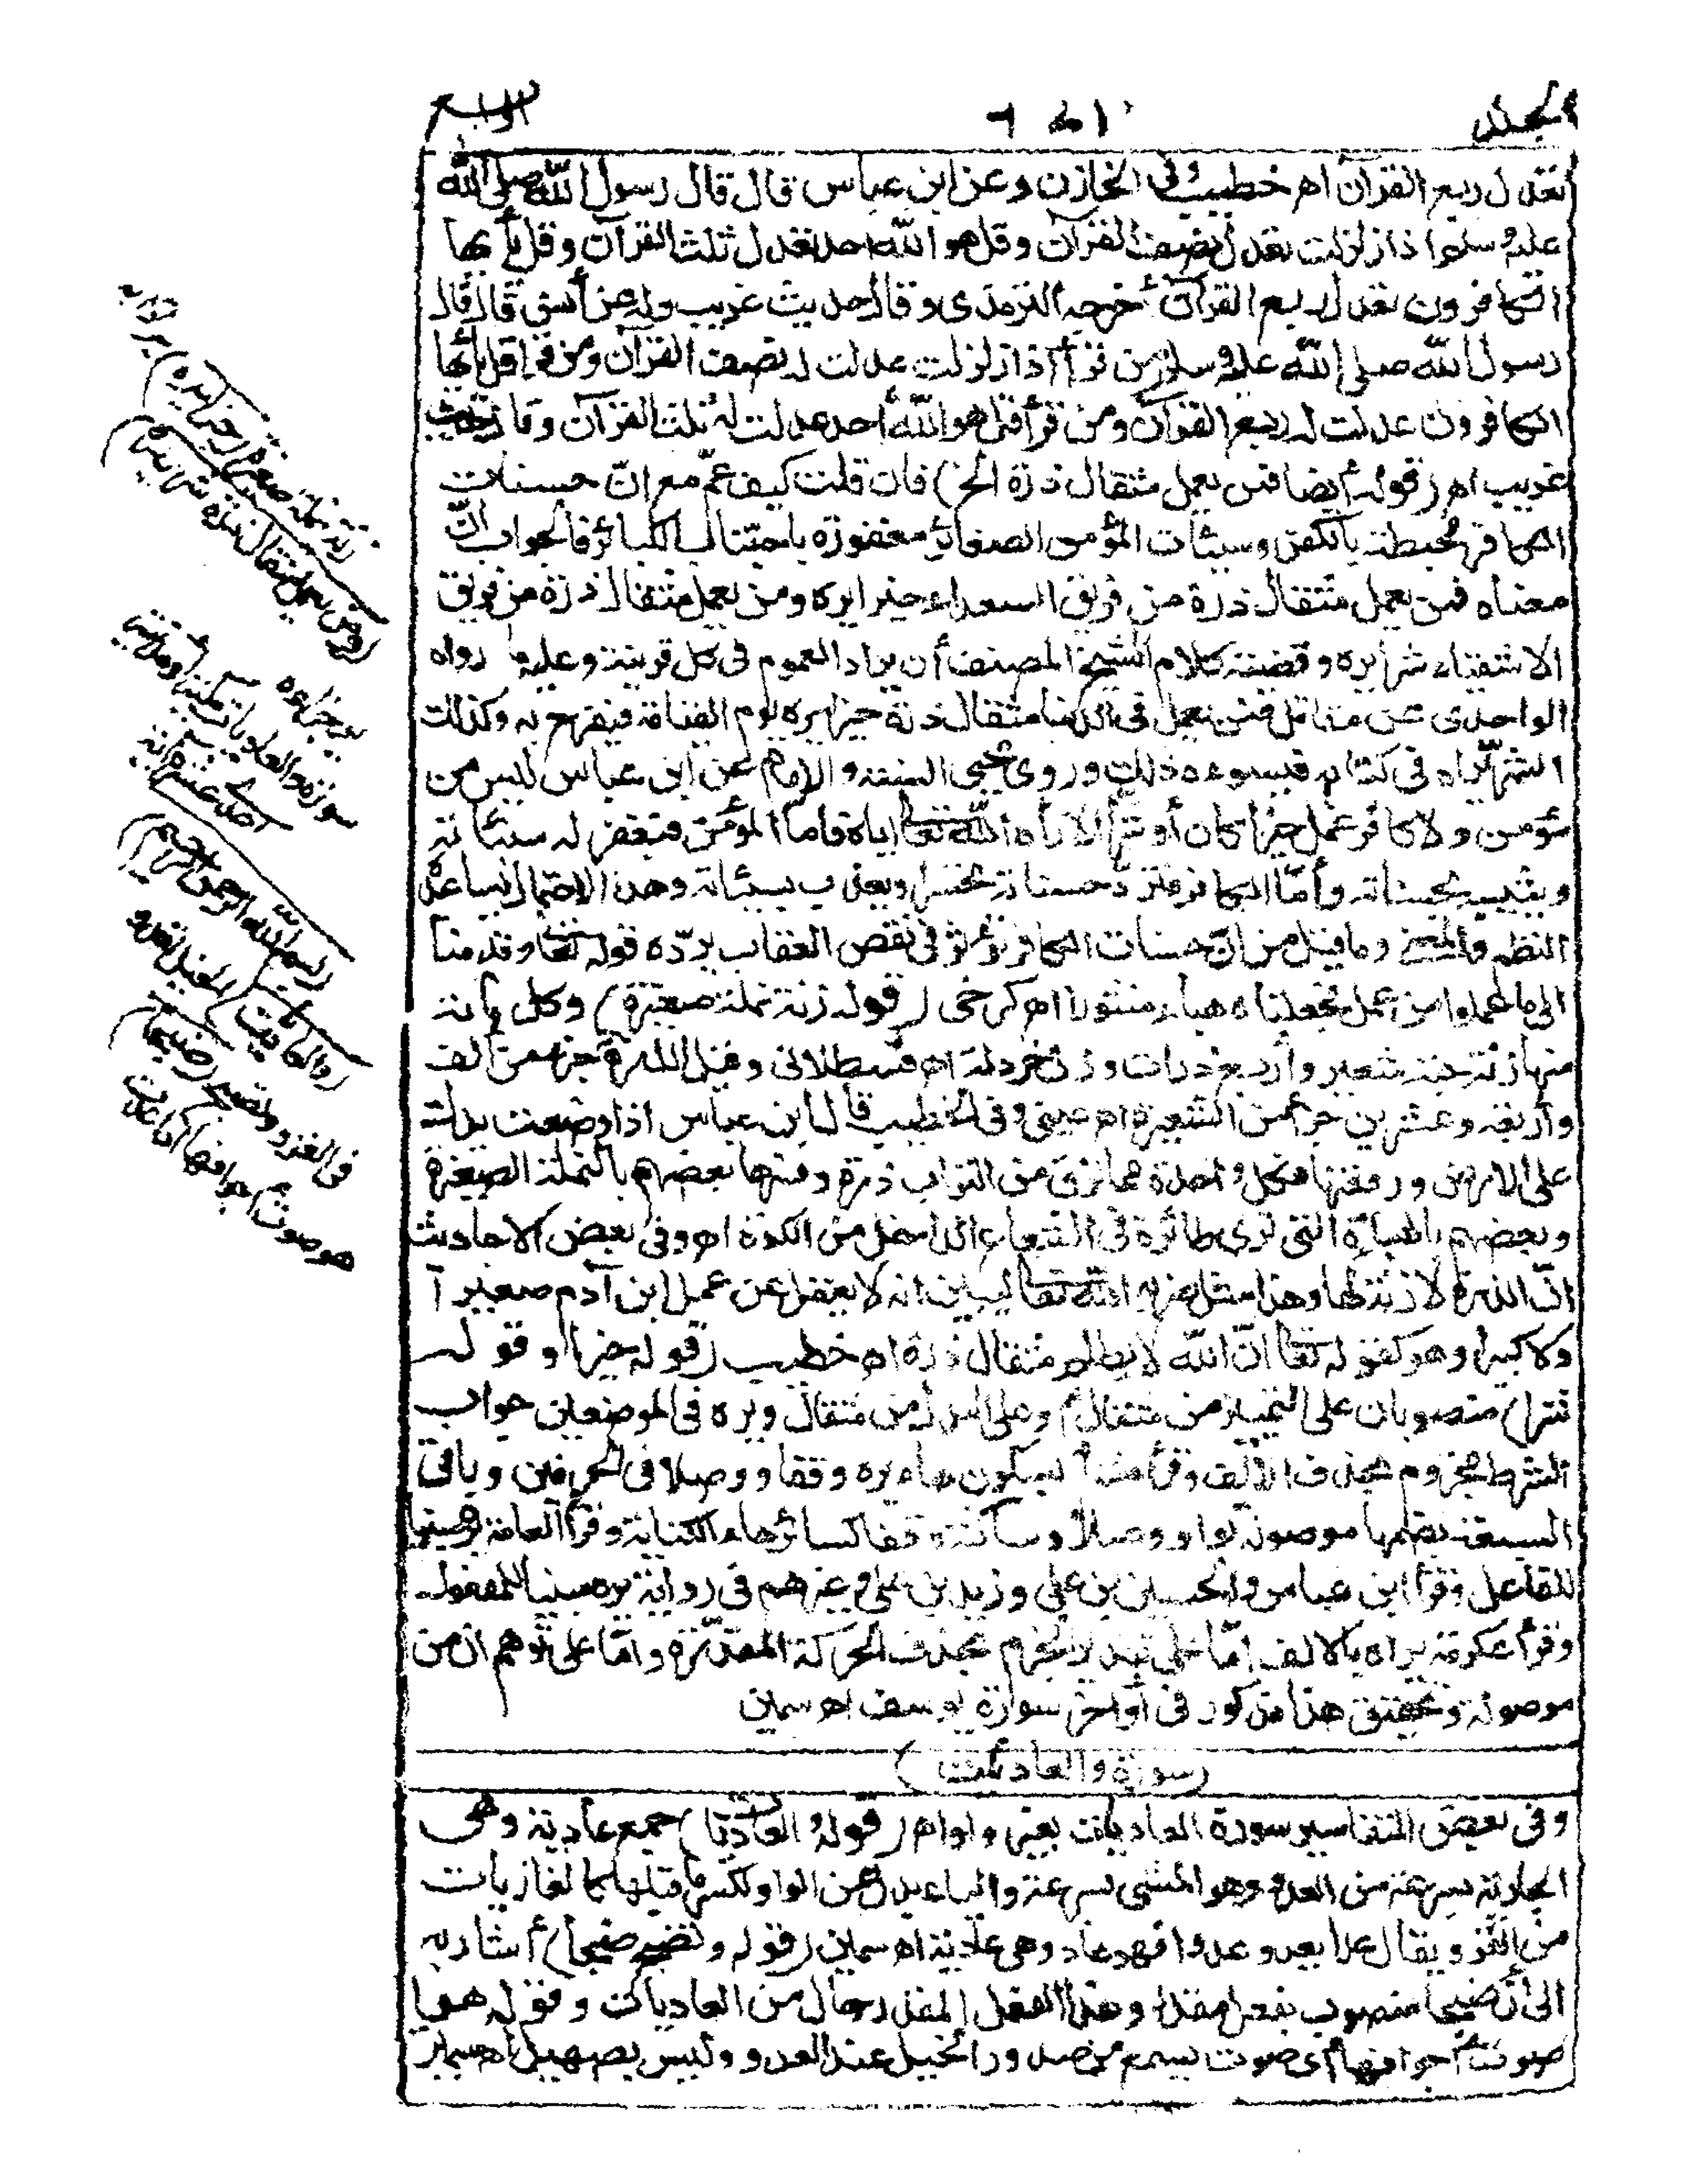 الجلد
الرابع
تعدل ربع القرآن اهـ خطيب وفى الخازن وعن ابن عباس قال قال رسول الله صلى الله
عليه وسلم اذا زلزلت تعدل نصف القرآن وقل هو الله احد تعدل ثلث القرآن وقل يأيها
الكافرون تعدل ربع القرآن أخرجه الترمذى وقال حديث غريب وله عن أنس قال قال
رسول الله صلى الله عليه وسلم من قرأ اذا زلزلت عدلت له نصف القرآن ومن قرأ قل يأيها
الكافرون عدلت له ربع القرآن ومن قرأ قل هو الله أحد عدلت له ثلث القرآن وقال حديث
غريب اهـ (قوله أيضا فمن يعمل مثقال ذرة الخ) فان قلت كيف عمّ مع انّ حسنات
الكافر محبطة بالكفر وسيئات المؤمن الصغائر مغفورة باجتناب الكبائر فالجواب انّ
معناه فمن يعمل مثقال ذرة من فريق السعداء خيرا يره ومن يعمل مثقال ذرة من فريق
الاشقياء شرا يره وقضية كلام الشيخ المصنف أن يراد العموم فى كل قرينة وعليه ما رواه
الواحدى عن مقاتل فمن يعمل فى الدنيا مثقال ذرة خيرا يره يوم القيامة فيفرح به وكذلك
الشرّ يراه فى كتابه فيسوءه ذلك وروى محيى السنة والامام عن ابن عباس ليس من
مؤمن ولا كافر عمل خيرا كان أو شرا الا أراه الله تعالى اياه فاما المؤمن فيغفر له سيئاته
ويثيبه بحسناته وأمّا الكافر فتردّ حسناته تحسرا ويعذب بسيئاته وهذا الاحتمال يساعده
النظم والمعنى وما قيل من انّ حسنات الكافر تؤثر فى نقص العقاب يردّه قوله تعالى وقدمنا
الى ما عملوا من عمل فجعلناه هباء منثورا اهـ كرخى (قوله زنة نملة صغيرة) وكل مائة
منها زنة حبة شعير وأربع ذرات وزن خردلة اهـ قسطلانى وقيل الذرة جزء من ألف
وأربعة وعشرين جزأ من الشعيرة اهـ عينى وفى الخطيب قال ابن عباس اذا وضعت يدك
على الارض ورفعتها فكل واحدة مما لزق من التراب ذرة وفسرها بعضهم بالنملة الصغيرة
وبعضهم بالهباءة التى ترى طائرة فى الشعاع الداخل من الكوة اهـ وفى بعض الاحاديث
انّ الذرة لا زنة لها وهذا مثل ضربه الله تعالى ليبين انه لا يغفل عن عمل ابن آدم صغيرا
ولا كبيرا وهو كقوله تعالى انّ الله لا يظلم مثقال ذرة اهـ خطيب (قوله خيرا) وقوله
شرا) منصوبان على التمييز من مثقال أو على البدل من مثقال ويره فى الموضعين جواب
الشرط مجزوم بحذف الالف وقرأ هشام بسكون هاء يره وقفا ووصلا فى الحرفين وباقى
السبعة بضمها موصولة بواو وصلا وساكنة وقفا كسائر هاء الكناية وقرأ العامة يره مبنيا
للفاعل وقرأ ابن عباس والحسين بن على وزيد بن على وغيرهم فى رواية يره مبنيا للمفعول
وقرأ عكرمة يراه بالالف امّا على تقدير الجزم بحذف الحركة المقدّرة وامّا على توهم ان من
موصولة وتحقيق هذا مذكور فى أواخر سورة يوسف اهـ سمين
(سورة والعاديات)
وفى بعض التفاسير سورة العاديات بغير واو اهـ (قوله والعاديات) جمع عادية وهى
الجارية بسرعة من العدو وهو المشى بسرعة والياء بدل عن الواو لكسر ما قبلها كالغازيات
من الغزو ويقال عدا يعدو عدوا فهو عاد وهى عادية اهـ سمين (قوله وتضبح ضبحا) أشار به
الى أن ضبحا منصوب بفعل مقدر وهذا الفعل المقدر حال من العاديات وقوله هو
صوت أجوافها أى صوت يسمع من صدور الخيل عند العدو وليس بصهيل اهـ سمين
زنة نملة صغيرة (خيرا يره) ير ثوابه
(ومن يعمل مثقال ذرة شرا يره)
ير جزاءه
سورة والعاديات مكية أو مدنية
احدى عشرة آية
(بسم الله الرحمن الرحيم)
(والعاديات) الخيل تعدو
فى الغزو وتضبح (ضبحا)
هو صوت أجوافها اذا عدت